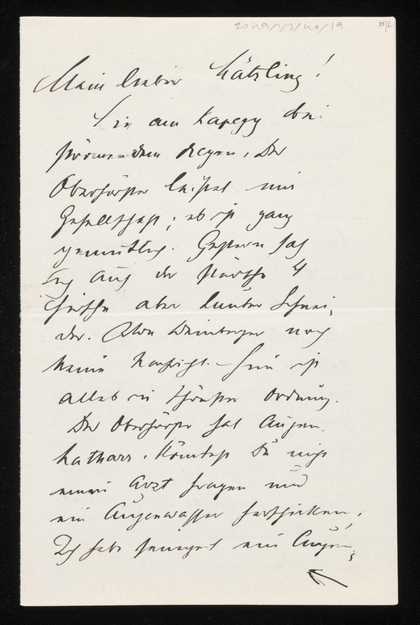 Mein lieber
Sie am
strömendem Regen. Der
Oberförster leistet mir
Gesellschaft; es ist ganz
gemütlich. Gestern sah
ich auf der Pürsche 4
Hirsche aber lauter Schnei-
der. Von Weinberger noch
keine Nachricht. Hier ist
alles in schönster Ordnung.
Der Oberförster hat Augen-
katharr. Könntest Du nicht
einen Arzt fragen und
ein Augenwasser herschicken.
Ich habe ein Augen-